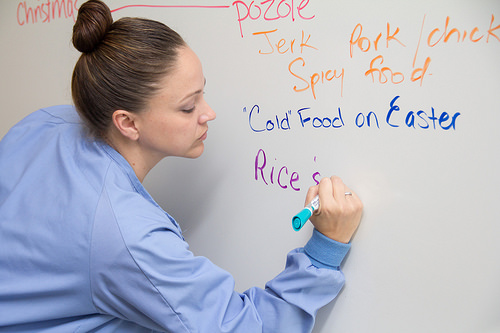 Christmas pozole
Jerk Pork / chick
Spicy food.
"Cold" Food on Easter
Rice